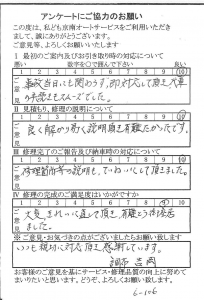 アンケートにご協力のお願い
この度は、私ども京南オートサービスをご利用いただき
まして、誠にありがとうございます。
ご意見等、よろしくお願いいたします
Ⅰ 最初のご案内及びお引き取り時の対応について
悪い 数字を○で囲んで下さい 良い
1 2 3 4 5 6 7 8 9 10
ご意見
事故当日にも関わらず、即対応して頂き
Ⅱ 見積もり、修理の説明について
1 2 3 4 5 6 7 8 9 10
ご意見
良く解かり易く説明頂き有難たかったです。
Ⅲ 修理完了のご報告及び納車時の対応について
1 2 3 4 5 6 7 8 9 10
ご意見
修理箇所等の説明も、ていねいにして頂きました。
Ⅳ 修理の完成のご満足度はいかがですか
1 2 3 4 5 6 7 8 9 10
ご意見
大変、きれいに直して頂き、有難とう御座居
ました。
※ご意見・お気づきの点がございましたらお願い致します
いつも親切に対応頂き感謝しています。
調布 吉岡
お客様のご意見を基にサービス・修理品質の向上に努めて
まいりたいと思います。どうぞ、よろしくお願い致します。
6-106